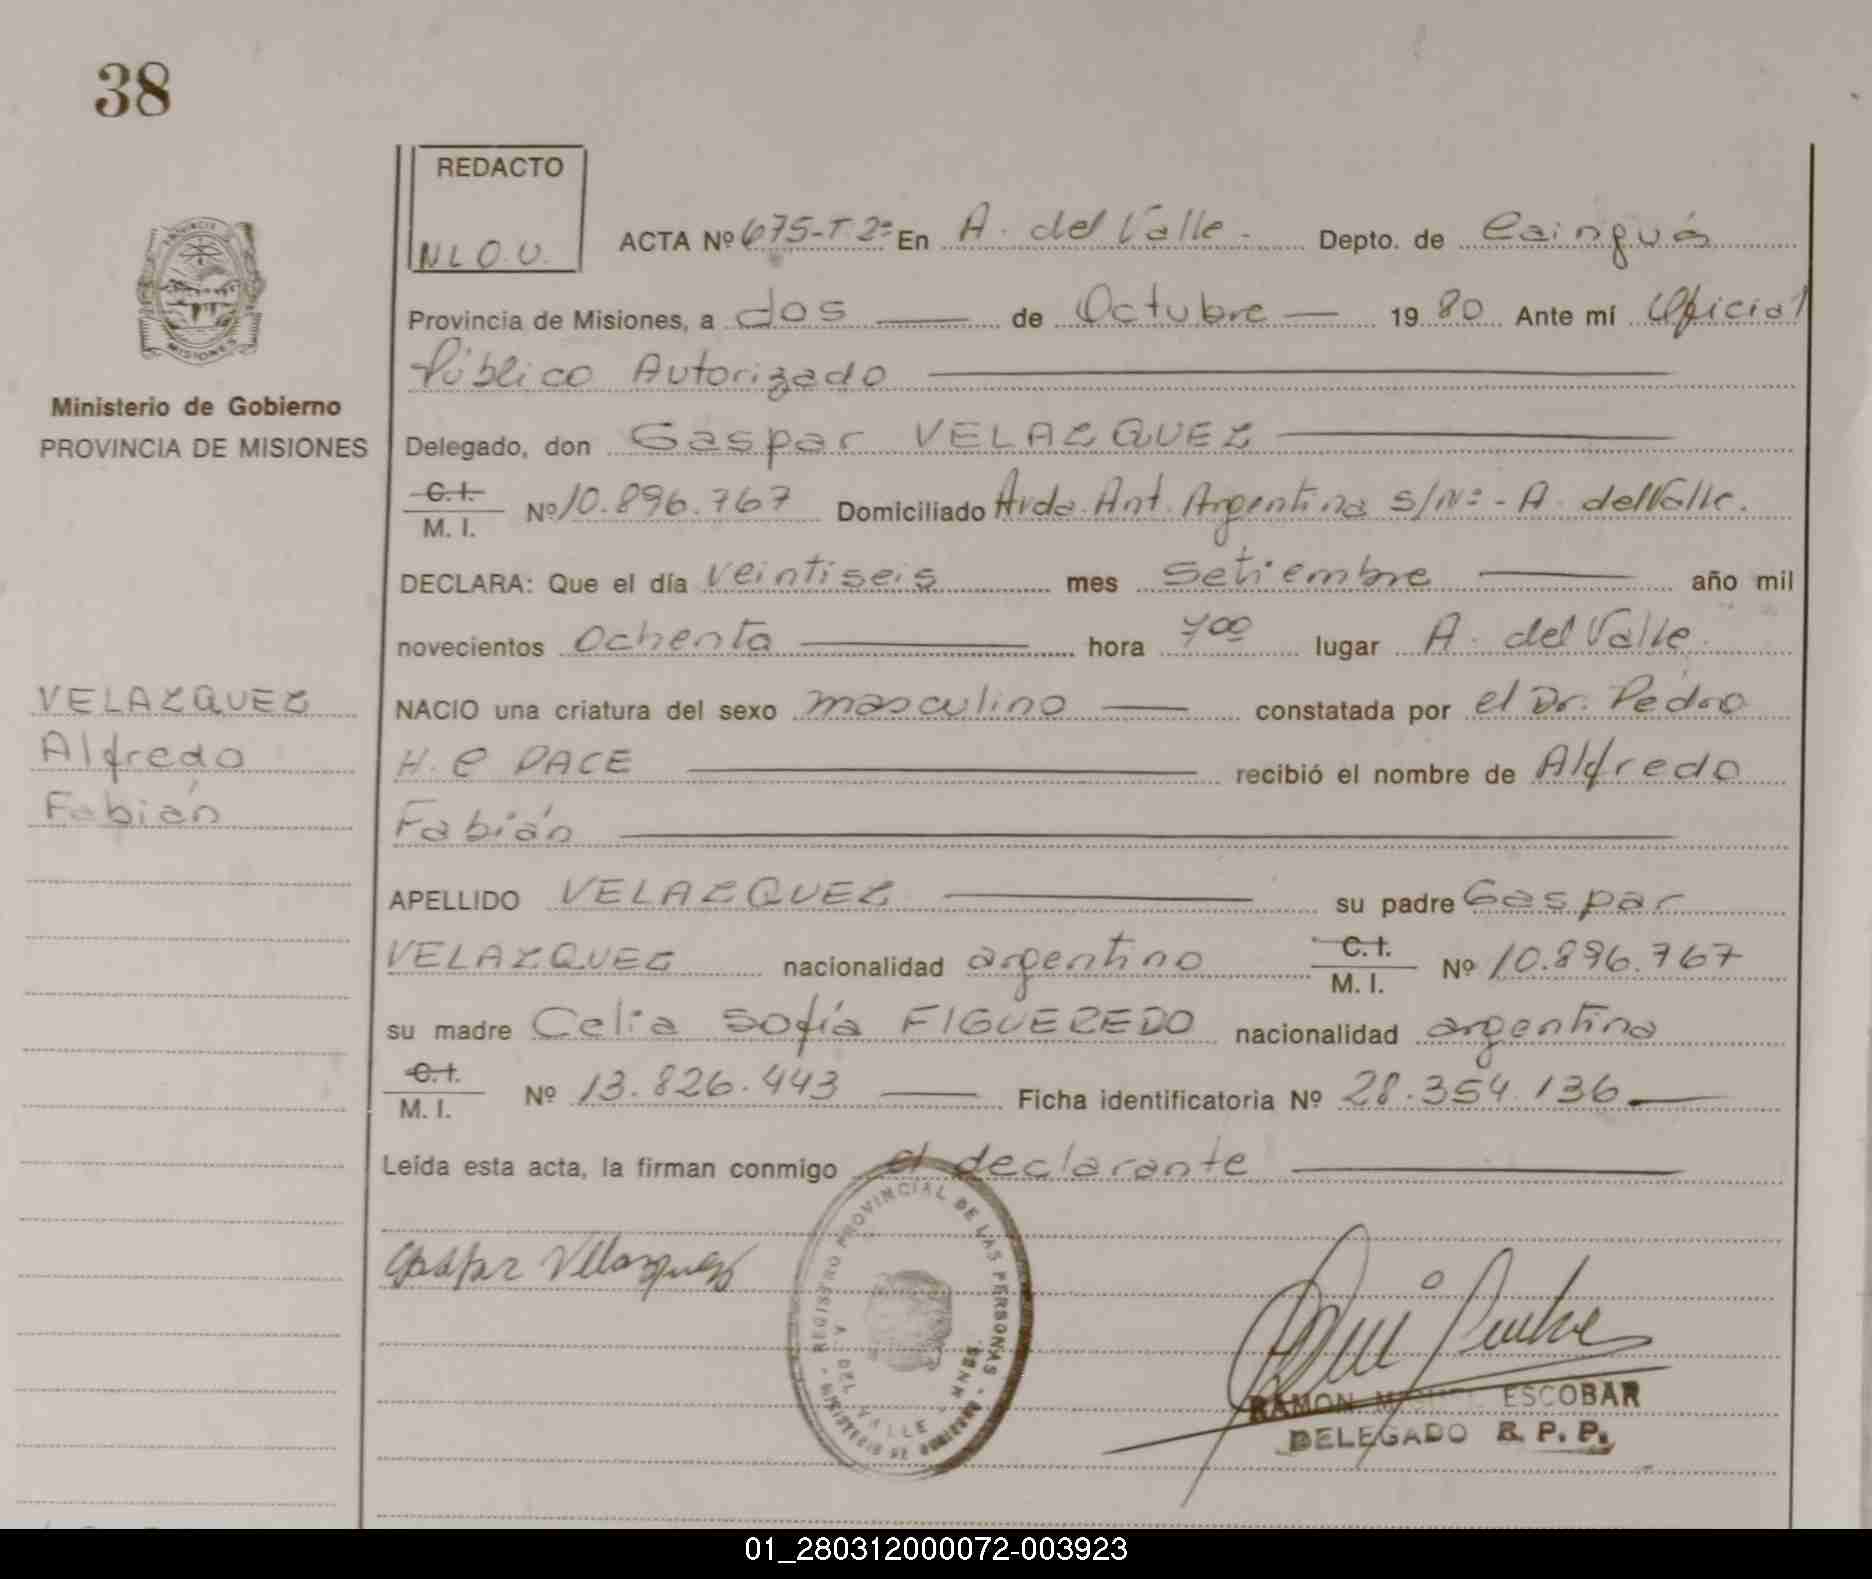 38
REDACTO
NLO.U.
ACTA Nº 675-T.2º En A. del Valle.- Depto. de Cainguás
Provincia de Misiones, a dos de Octubre 1980 Ante mí Oficial
Público Autorizado
Ministerio de Gobierno
PROVINCIA DE MISIONES
Delegado, don Gaspar VELAZQUEZ
C.I.
M. I. Nº 10.896.767 Domiciliado Avda. Ant. Argentina s/Nº - A. del Valle.
DECLARA: Que el día veintiseis mes setiembre año mil
novecientos ochenta hora 400 lugar A. del Valle.
VELAZQUEZ
Alfredo
Fabián
NACIO una criatura del sexo masculino constatada por el Dr. Pedro
H. C PACE recibió el nombre de Alfredo
Fabián
APELLIDO VELAZQUEZ su padre Gaspar
VELAZQUEZ nacionalidad argentino C.I. M. I. Nº 10.896.767
su madre Celia Sofía FIGUEREDO nacionalidad argentina
C.I.
M. I. Nº 13.826.443 Ficha identificatoria Nº 28.354.136
Leída esta acta, la firman conmigo el declarante
Gaspar Velazquez
REGISTRO PROVINCIAL DE LAS PERSONAS - MINISTERIO DE GOBIERNO
A. DEL VALLE
RAMON MIGUEL ESCOBAR
DELEGADO R. P. P.
01_280312000072-003923